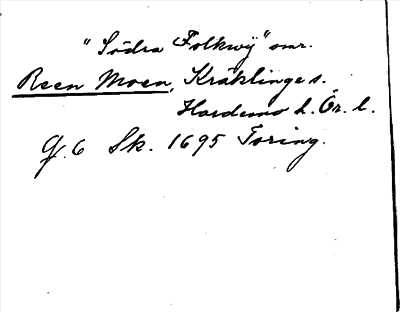 "Södra Folkwij" omr.
Reen Moen, Kräklinge s.
Hardemo h. Ör. l.
G. 6 Sk. 1695 Toring.